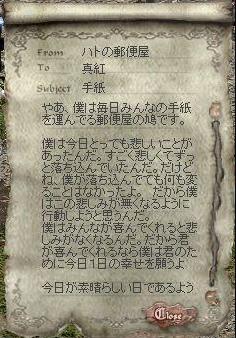 From ハトの郵便屋
To 真紅
Subject 手紙
やあ、僕は毎日みんなの手紙
を運んでる郵便屋の鳩です。
僕は今日とっても悲しいことが
あったんだ。すごく悲しくてずっ
と落ち込んでいたんだ。だけど
ね、僕が落ち込んでても何も変
ることはなかったよ。だから僕
はこの悲しみが無くなるように
行動しようと思うんだ。
僕はみんなが喜んでくれると悲
しみがなくなるんだ。だから君
が喜んでくれるなら僕は君のた
めに今日1日の幸せを願うよ
今日が素晴らしい日であるよう
Close